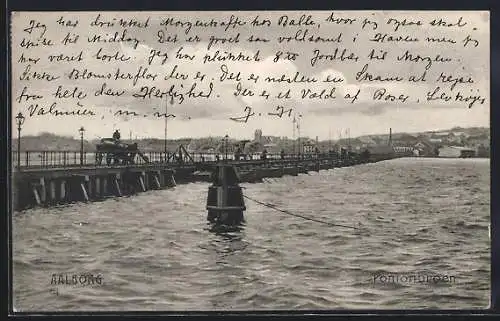 Jeg har drukket Morgenkaffe hos Balle, hvor jeg ogsaa skal
spise til Middag. Det er godt saa voldsomt i Haven men jeg
har været borte. Jeg har plukket 8 Jordbær til Morgen.
Sikke Blomsterflor der er. Det er næsten en Skam at rejse
fra hele den Herlighed. Der er et Væld af Roser, Levkøjer
Valmuer, m. m. J. J.
AALBORG
Pontonbroen